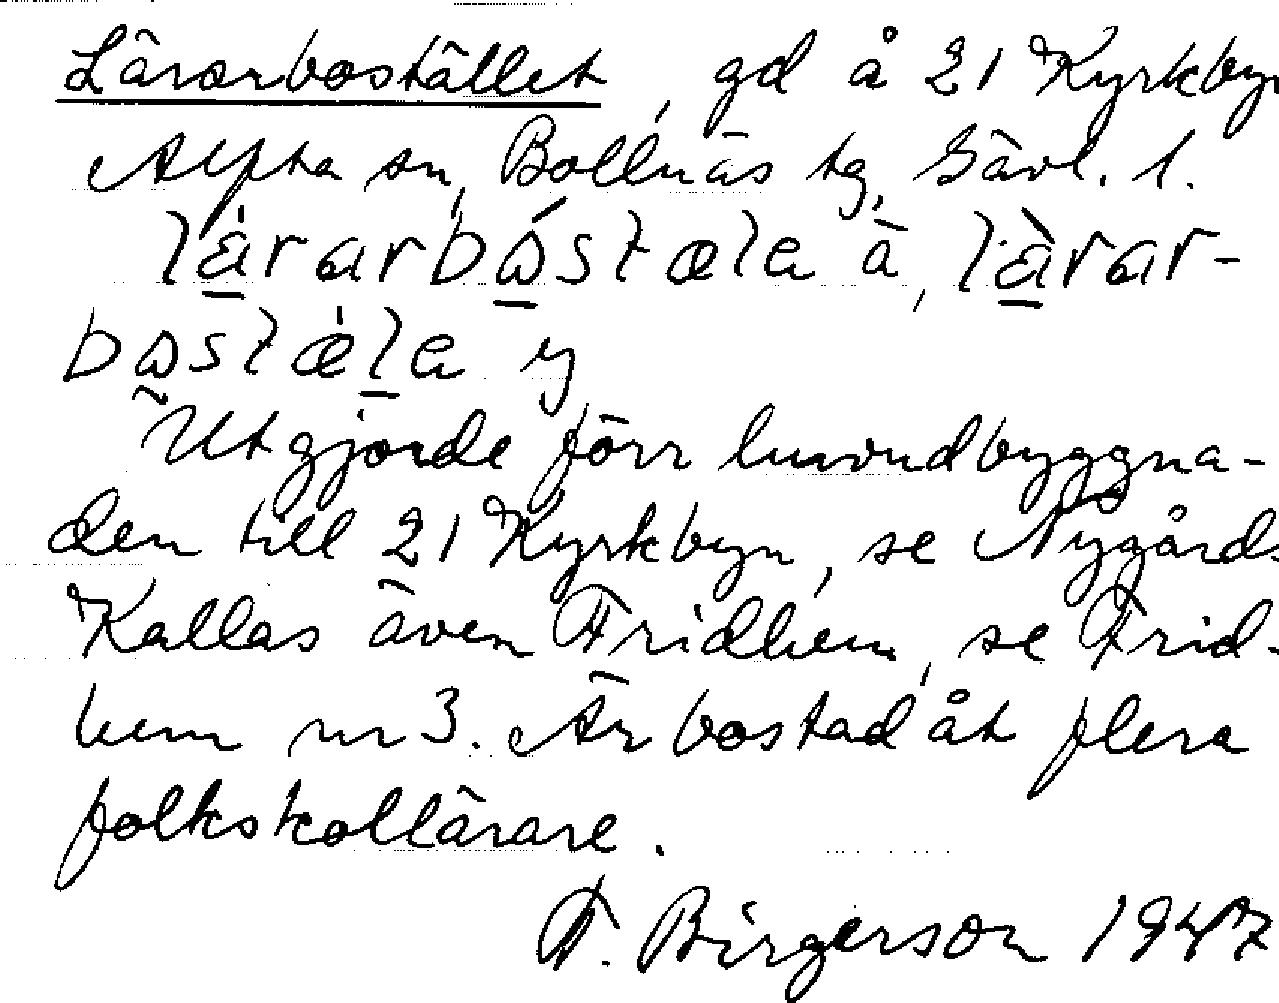 Lärarbostället, gd å 21 Kyrkbyn
Alfta sn, Bollnäs tg, Gävl. l.
lärarbåstæle ä, lärar-
båstæle y
Utgjorde förr huvudbyggna-
den till 21 Kyrkbyn, se Nygårds
Kallas även Fridhem, se Frid-
hem nr 3. Är bostad åt flera
folkskollärare.
F. Birgerson 1947